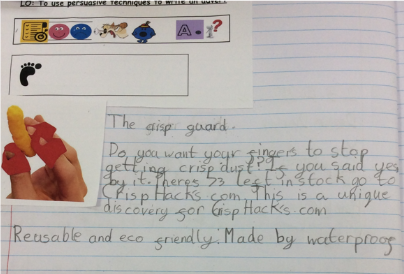 LO: To use persuasive techniques to write an advert
A.
?
The crisp guard.
Do you want your fingers to stop
getting crisp dust? If you said yes
by it. Theres 53 left in stock go to
CrispHacks.com This is a unique
discovery for CrispHacks.com
Reusable and eco friendly. Made by waterproof